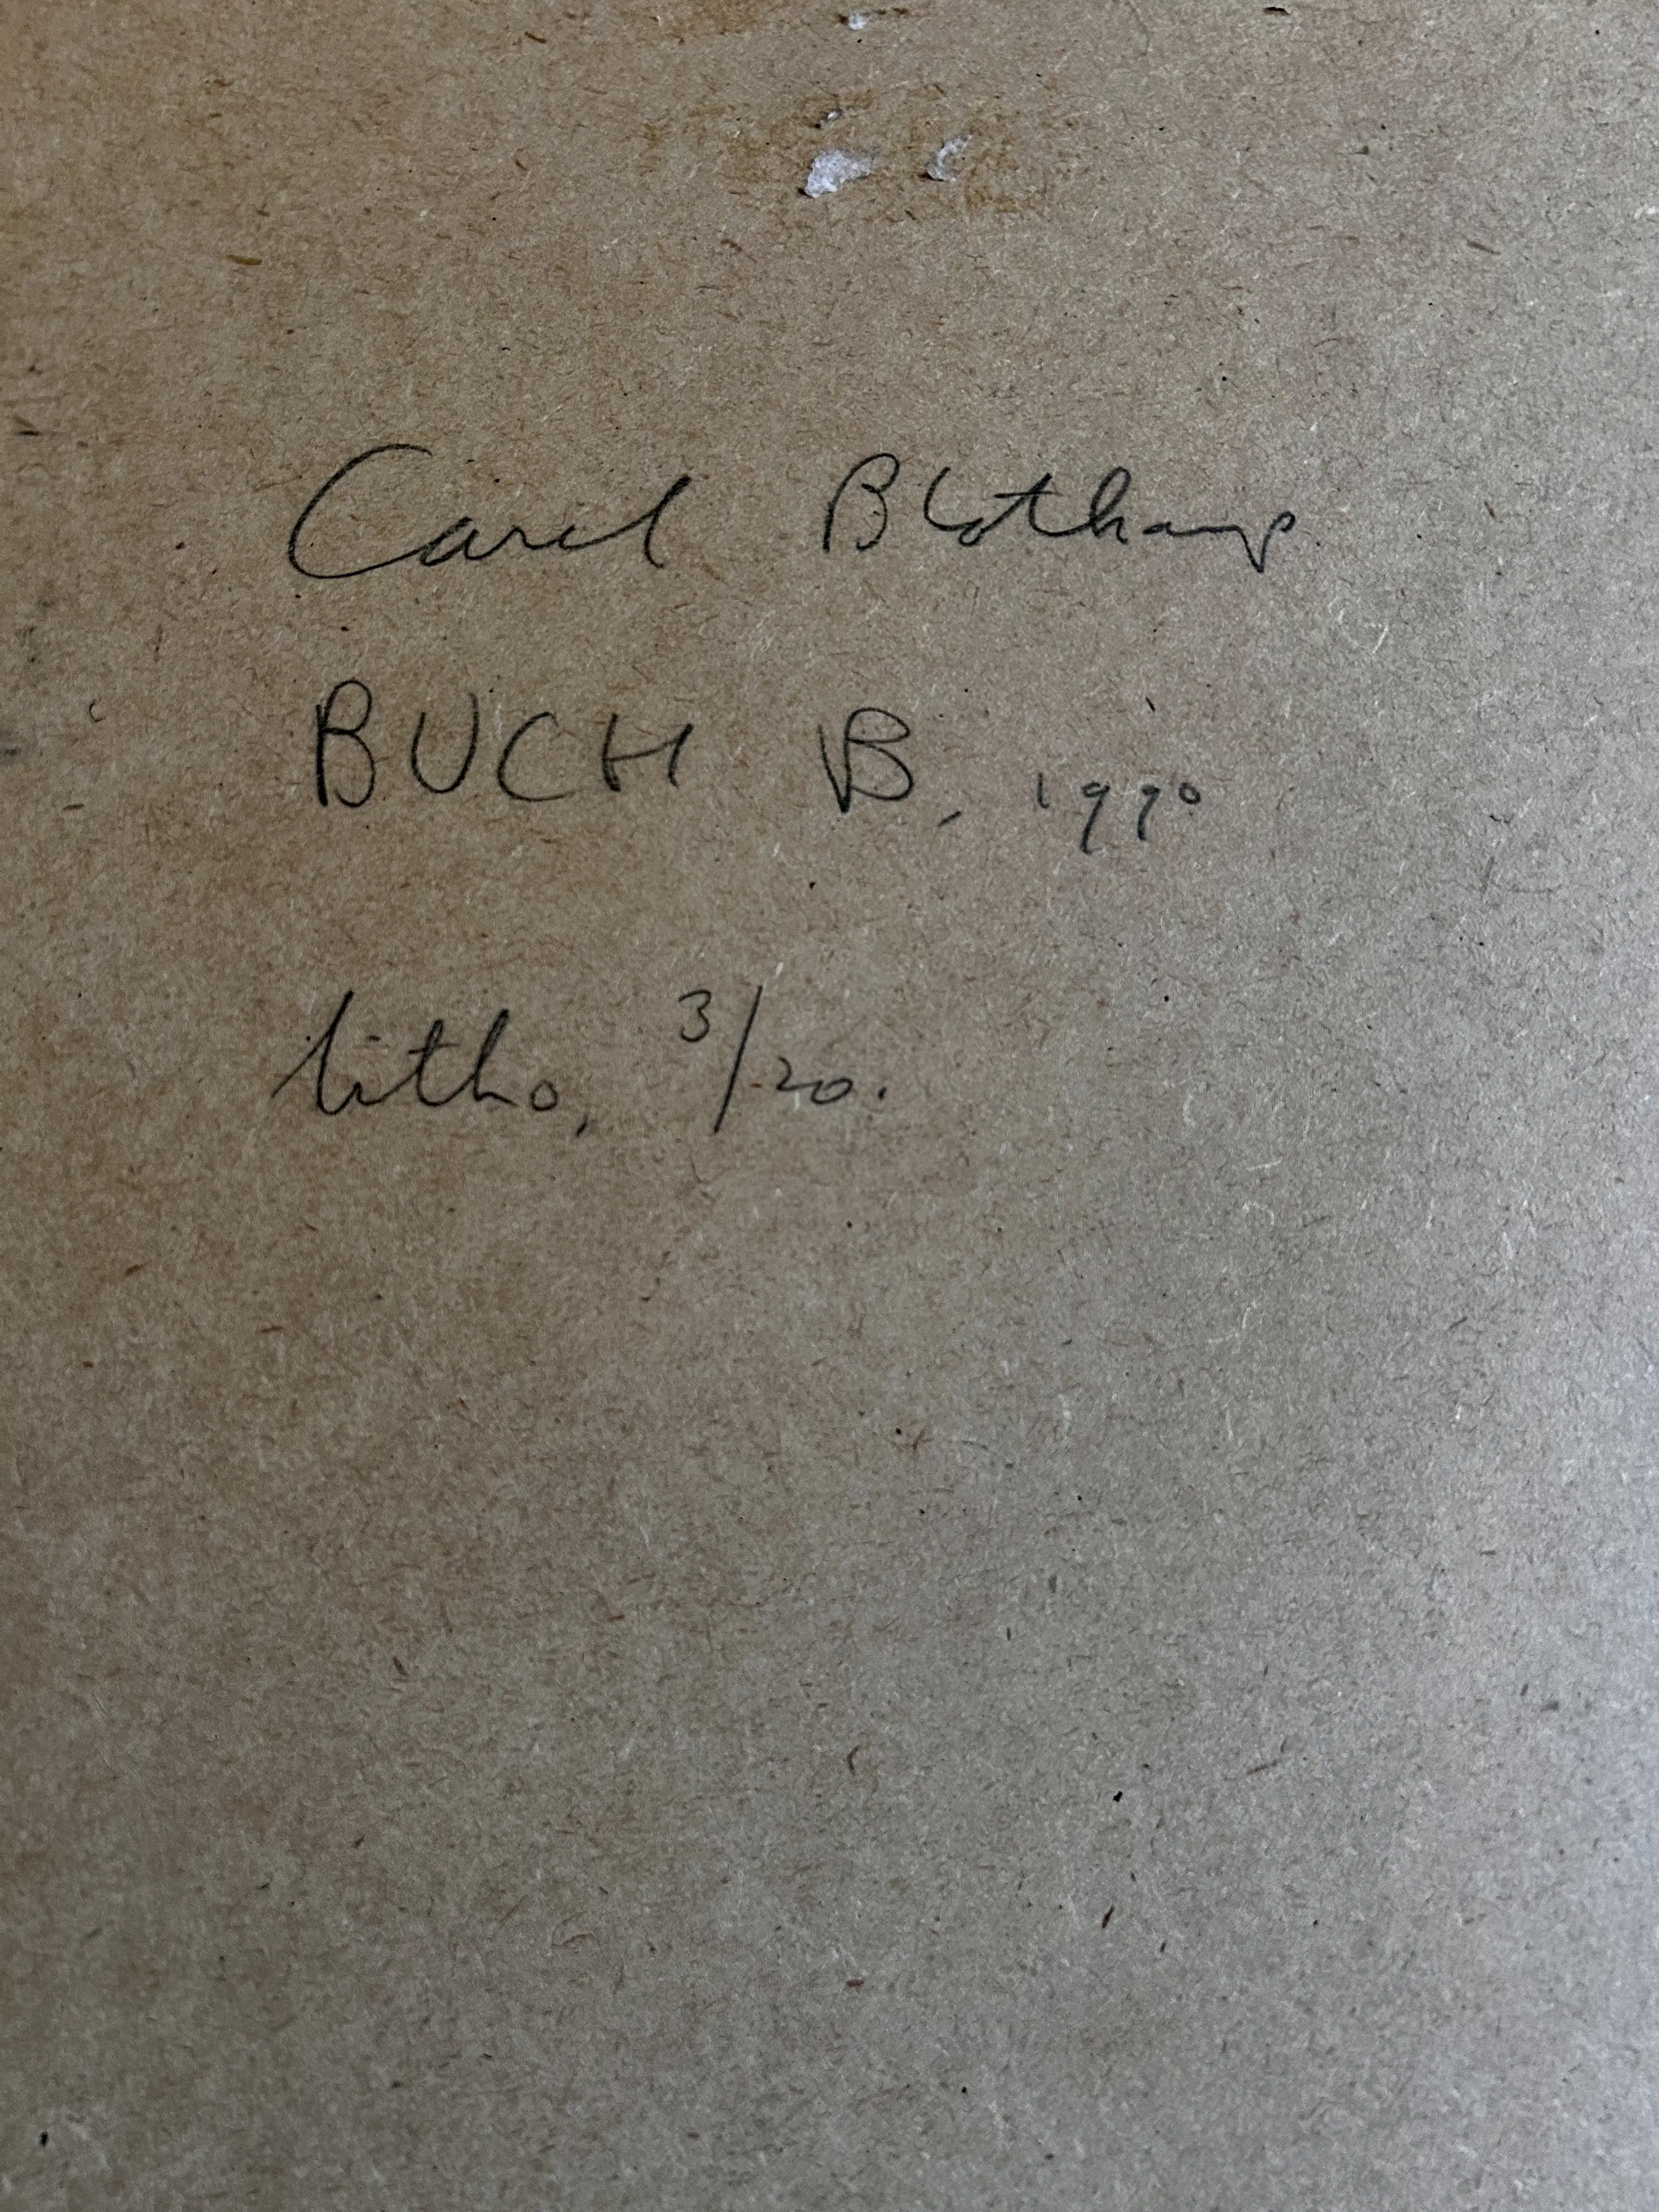 Carel Blotkamp
BUCH B, 1990
litho, 3/20.